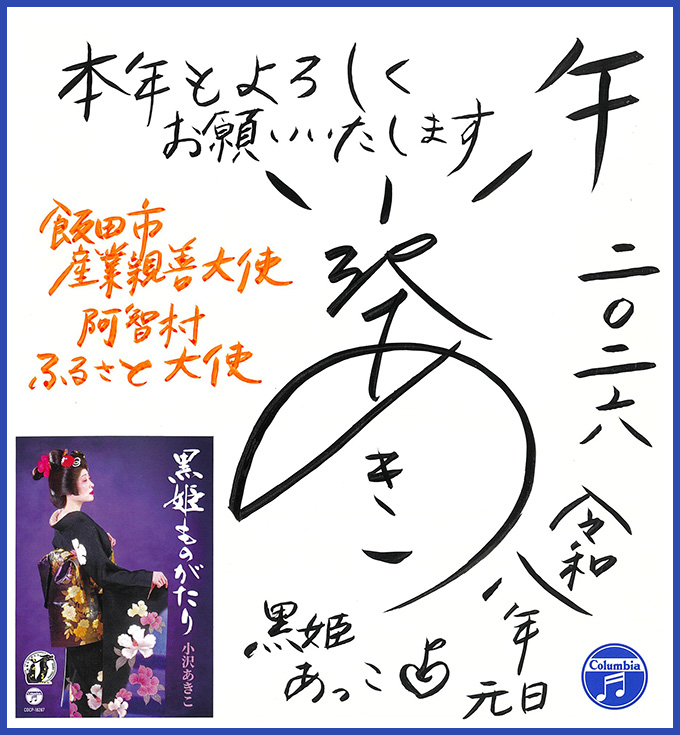 午
本年もよろしく
お願いいたします
小沢あきこ
飯田市
産業親善大使
阿智村
ふるさと大使
二〇二六
令和
八年
元日
黒姫
あっこ
黒姫ものがたり
小沢あきこ
Columbia
Columbia